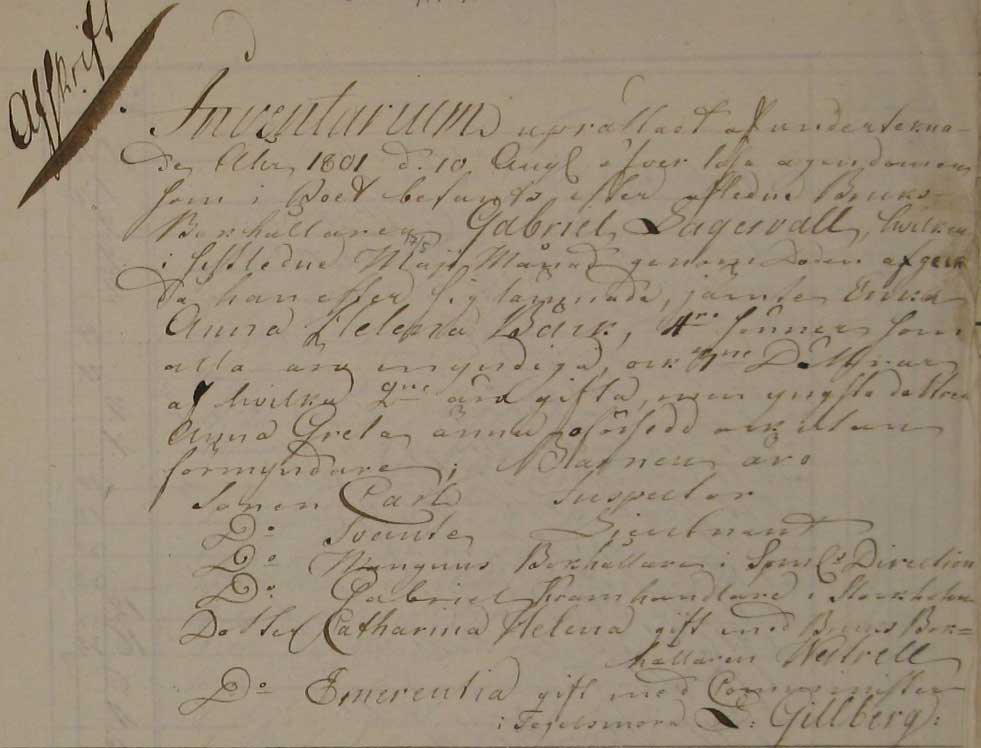 Afskrift
Inventarium uprättact af underteckna-
de Åhr 1801 d: 10 Aug| öfver lösa egendomen
som i Boet befants efter afledne Bruks-
Bokhållaren Gabriel Lagervall, hvilken
i sistledne Maji 17/5 Månad genom Döden afgick
Då han efter sig lämnade, jämte Enka
Anna Helena Bärk, 4ra sönner som
alla äro myndiga, ock 3ne Döttrar
af hvilka 2ne äro gifta, men yngsta dottren
Anna Greta ännu oförsedd ock utan
förmyndare; Barnen äro
Sonen Carl Inspector
Do Svante Lieutnant
Do Mangnus Bokhållare i Direction
Do Gabriel Kramhandlare i Stockholm
Dotter Catharina Helena gift med Bruks Bok=
hållaren
Do Emerentia gift med Comminister
i Tegelsmora L: Gillberg: